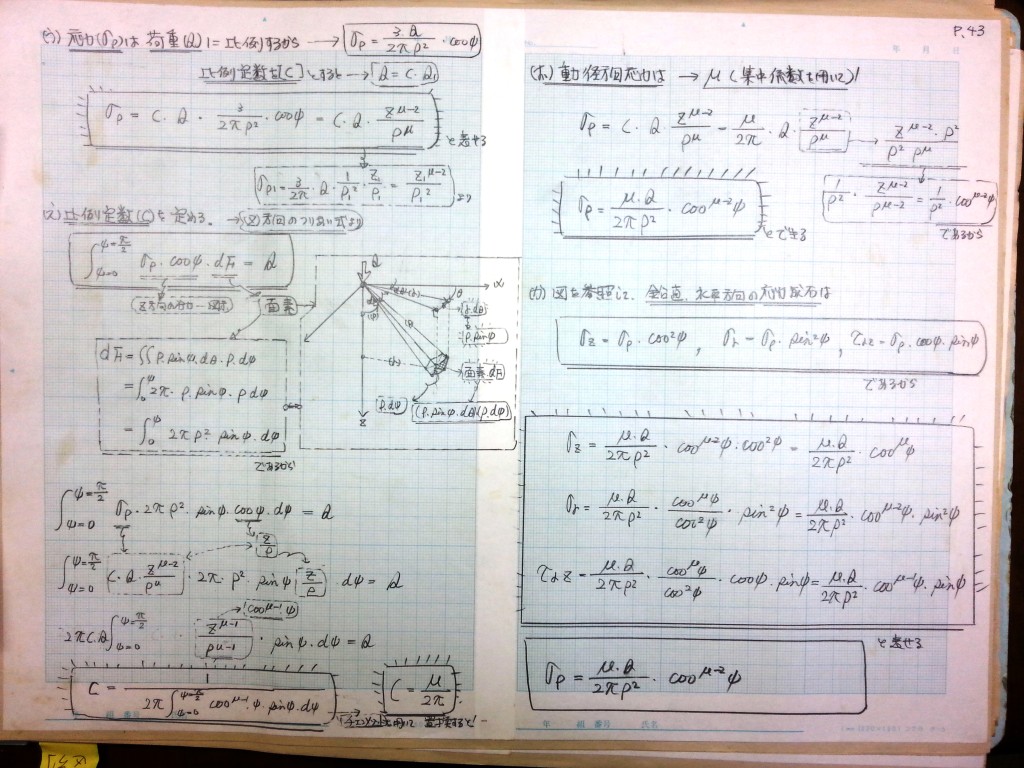 P.43
う) 応力(σρ)は 荷重(Q)に比例するから → σρ = 3·Q/2πρ² · cosψ
比例定数を[C]とすると → Q = C·Q₁
σρ = C · Q · 3/2πρ² · cosψ = C · Q · Z^(μ-2)/ρ^μ
と表せる
σρ₁ = 3/2π · Q · 1/ρ₁² · Z₁/ρ₁ = Z₁^(μ-2)/ρ₁² より
(え) 比例定数(C)を定める。 → (Z)方向のつりあい式より
∫ψ=0^ψ=π/2 σρ · cosψ · dF = Q
面素
dF = ∬ρ·sinψ·dθ·ρ·dψ
= ∫0^ψ 2π·ρ·sinψ·ρdψ
= ∫0^ψ 2πρ²·sinψ·dψ
であるから
Q
Z
ρ·sinψ
面素 dF
ρ·dψ
(ρ·sinψ·dθ)(ρ·dψ)
∫ψ=0^ψ=π/2 σρ·2πρ²·sinψ·cosψ·dψ = Q
Z/ρ
∫ψ=0^ψ=π/2 C·Q·Z^(μ-2)/ρ^μ · 2π·ρ²·sinψ · Z/ρ · dψ = Q
cos^(μ-1)ψ
2πC·Q ∫ψ=0^ψ=π/2 Z^(μ-1)/ρ^(μ-1) · sinψ·dψ = Q
C = 1/2π∫ψ=0^ψ=π/2 cos^(μ-1)·ψ·sinψ·dψ → C = μ/2π
(お) 動径方向応力は → μ(集中係数を用いて)
σρ = C · Q · Z^(μ-2)/ρ^μ = μ/2π · Q · Z^(μ-2)/ρ^μ → Z^(μ-2)·ρ²/ρ²·ρ^μ
1/ρ² · Z^(μ-2)/ρ^(μ-2) = 1/ρ² · cos^(μ-2)ψ
であるから
σρ = μ·Q/2πρ² · cos^(μ-2)ψ
とできる
(か) 図を参照して、鉛直、水平方向の応力成分は
σz = σρ·cos²ψ , σr = σρ·sin²ψ , τrz = σρ·cosψ·sinψ
であるから
σz = μ·Q/2πρ² · cos^(μ-2)ψ·cos²ψ = μ·Q/2πρ² · cos^μψ
σr = μ·Q/2πρ² · cos^μψ/cos²ψ · sin²ψ = μ·Q/2πρ² · cos^(μ-2)ψ·sin²ψ
τrz = μ·Q/2πρ² · cos^μψ/cos²ψ · cosψ·sinψ = μ·Q/2πρ² · cos^(μ-1)ψ·sinψ
と表せる
σρ = μ·Q/2πρ² · cos^(μ-2)ψ
年 組 番号 氏名